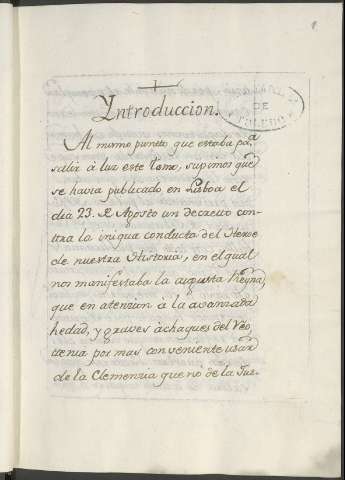 1
DE
TOLEDO
Yntroduccion.
Al mismo puntto que estaba pa.ª
salir à luz este tomo, supimos que
se havia publicado en Lisboa el
dia 23. de Agosto un decretto con-
ttra la iniqua conducta del Heroe
de nuestra Historia, en el qual
nos manifestaba la augusta Reyna,
que en atenzion à la avanzada
hedad, y graves àchaques del Reo,
ttenia por mas conveniente usar
de la Clemenzia que nò de la Jus-